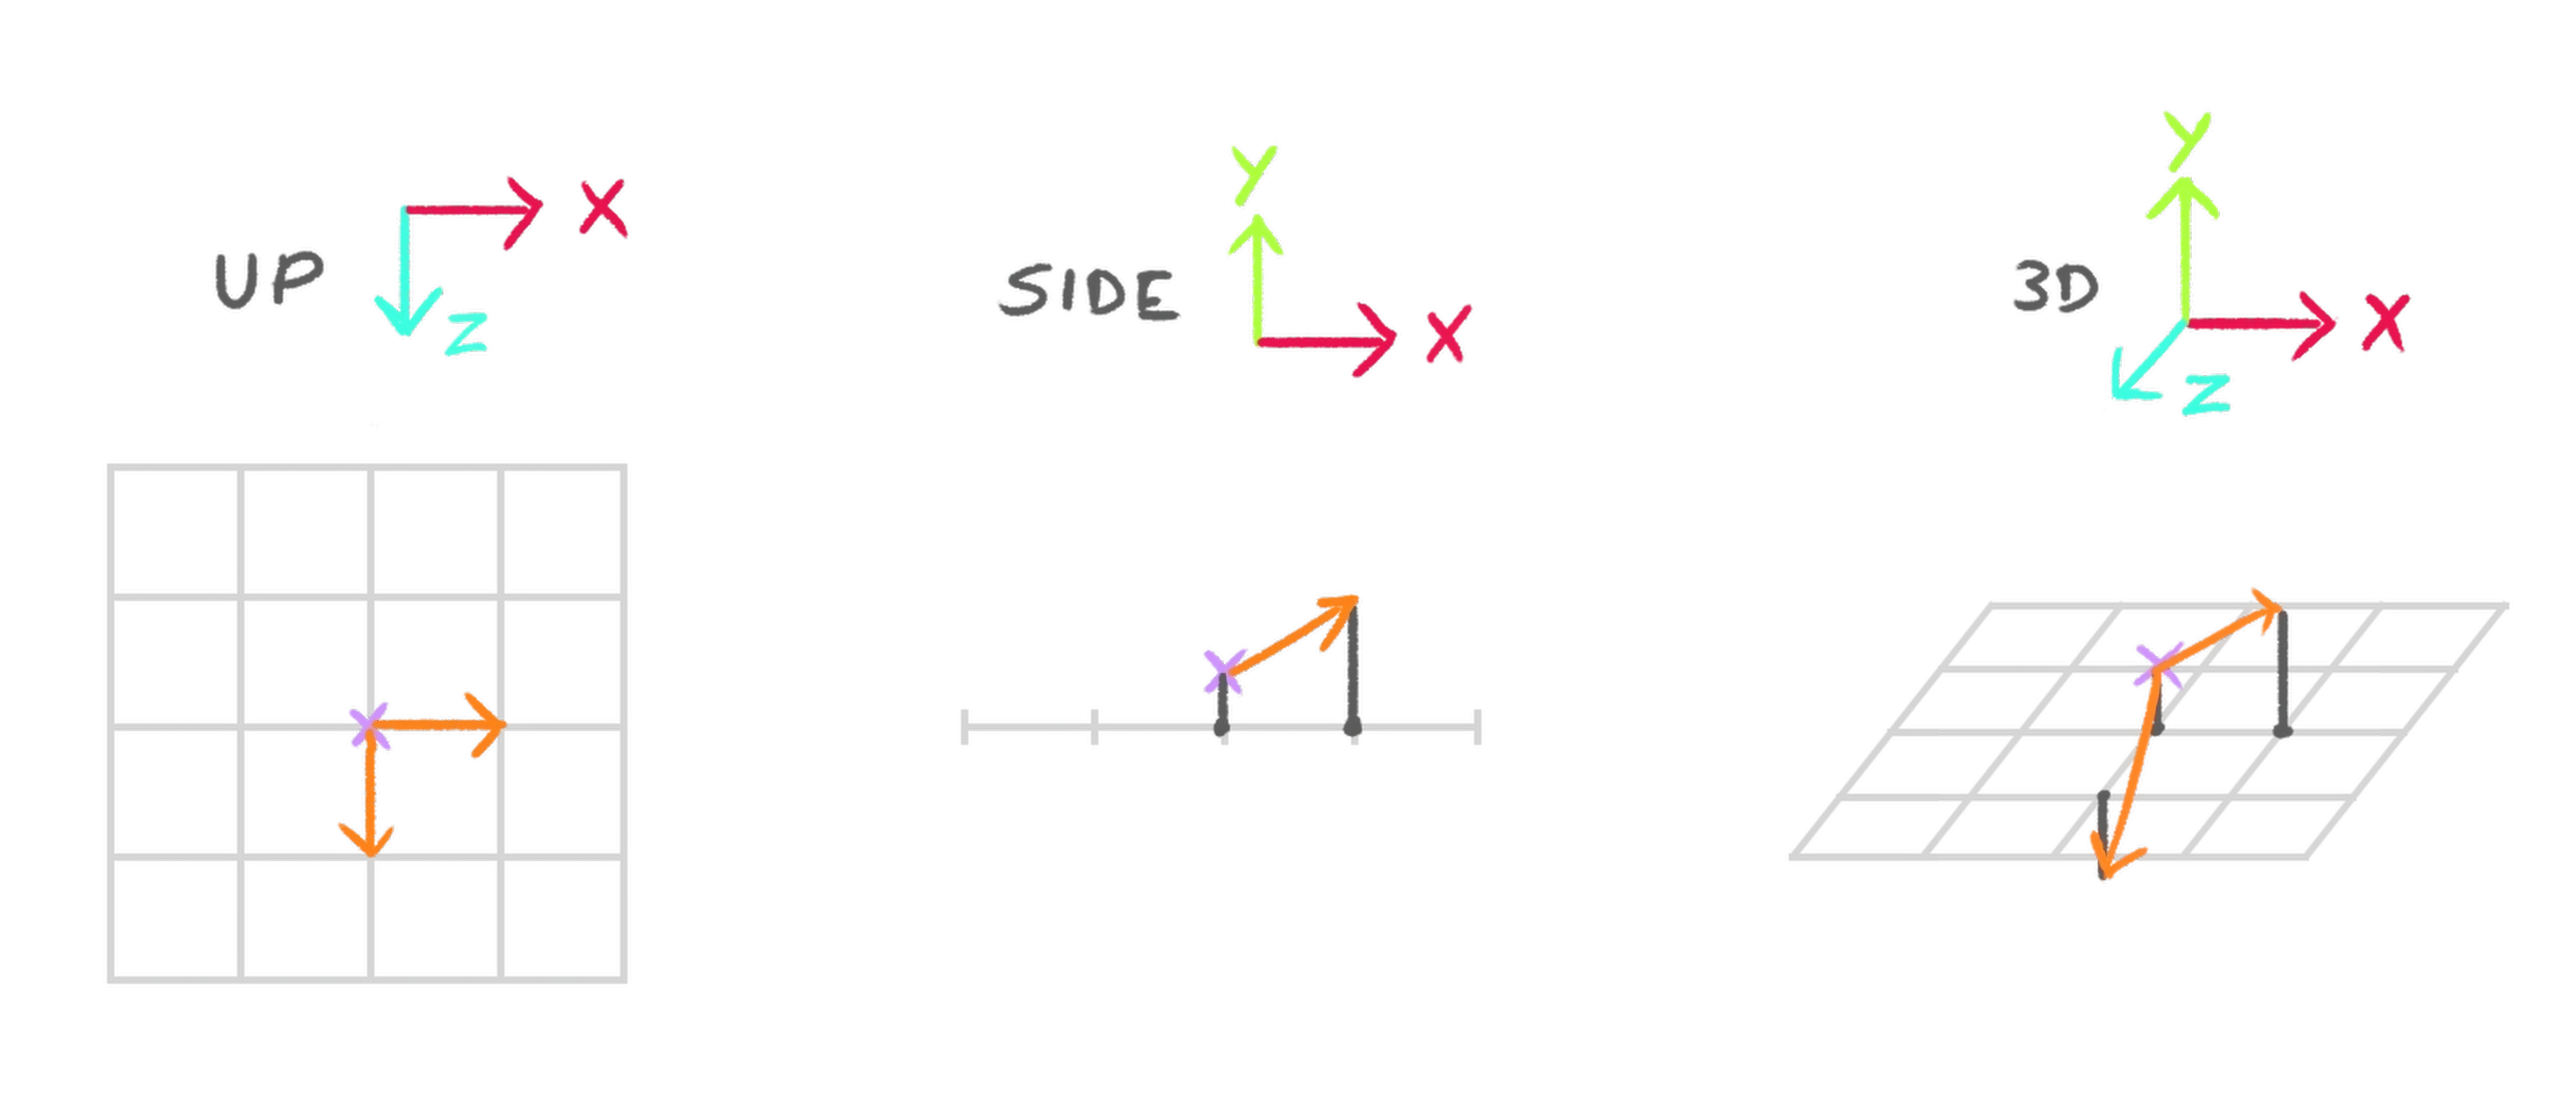 UP
X
Z
SIDE
Y
X
3D
Y
X
Z